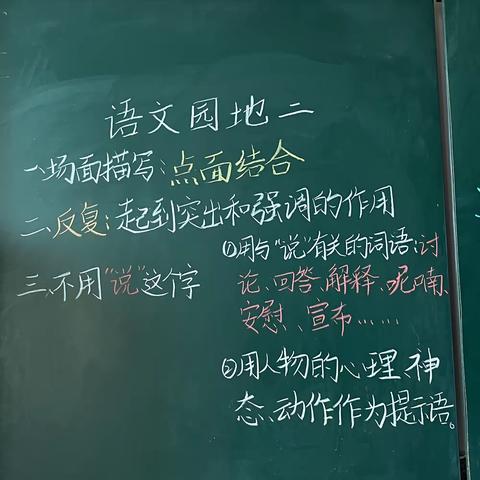 语文园地二
一、场面描写：点面结合
二、反复：起到突出和强调的作用
三、不用“说”这个字
①用与“说”有关的词语：讨
论、回答、解释、呢喃、
安慰、宣布……
②用人物的心理、神
态、动作作为提示语。